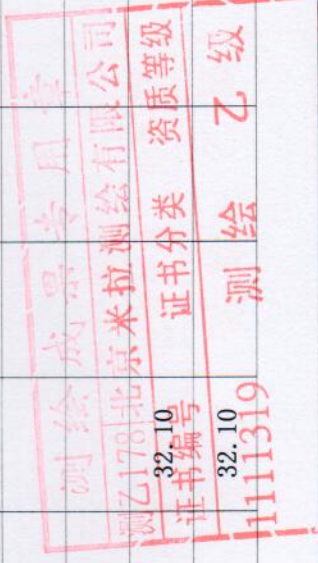 测绘成果专用章
测乙178|北京米拉测绘有限公司
证书编号 证书分类 资质等级
1111319 测绘 乙级
32.10
32.10